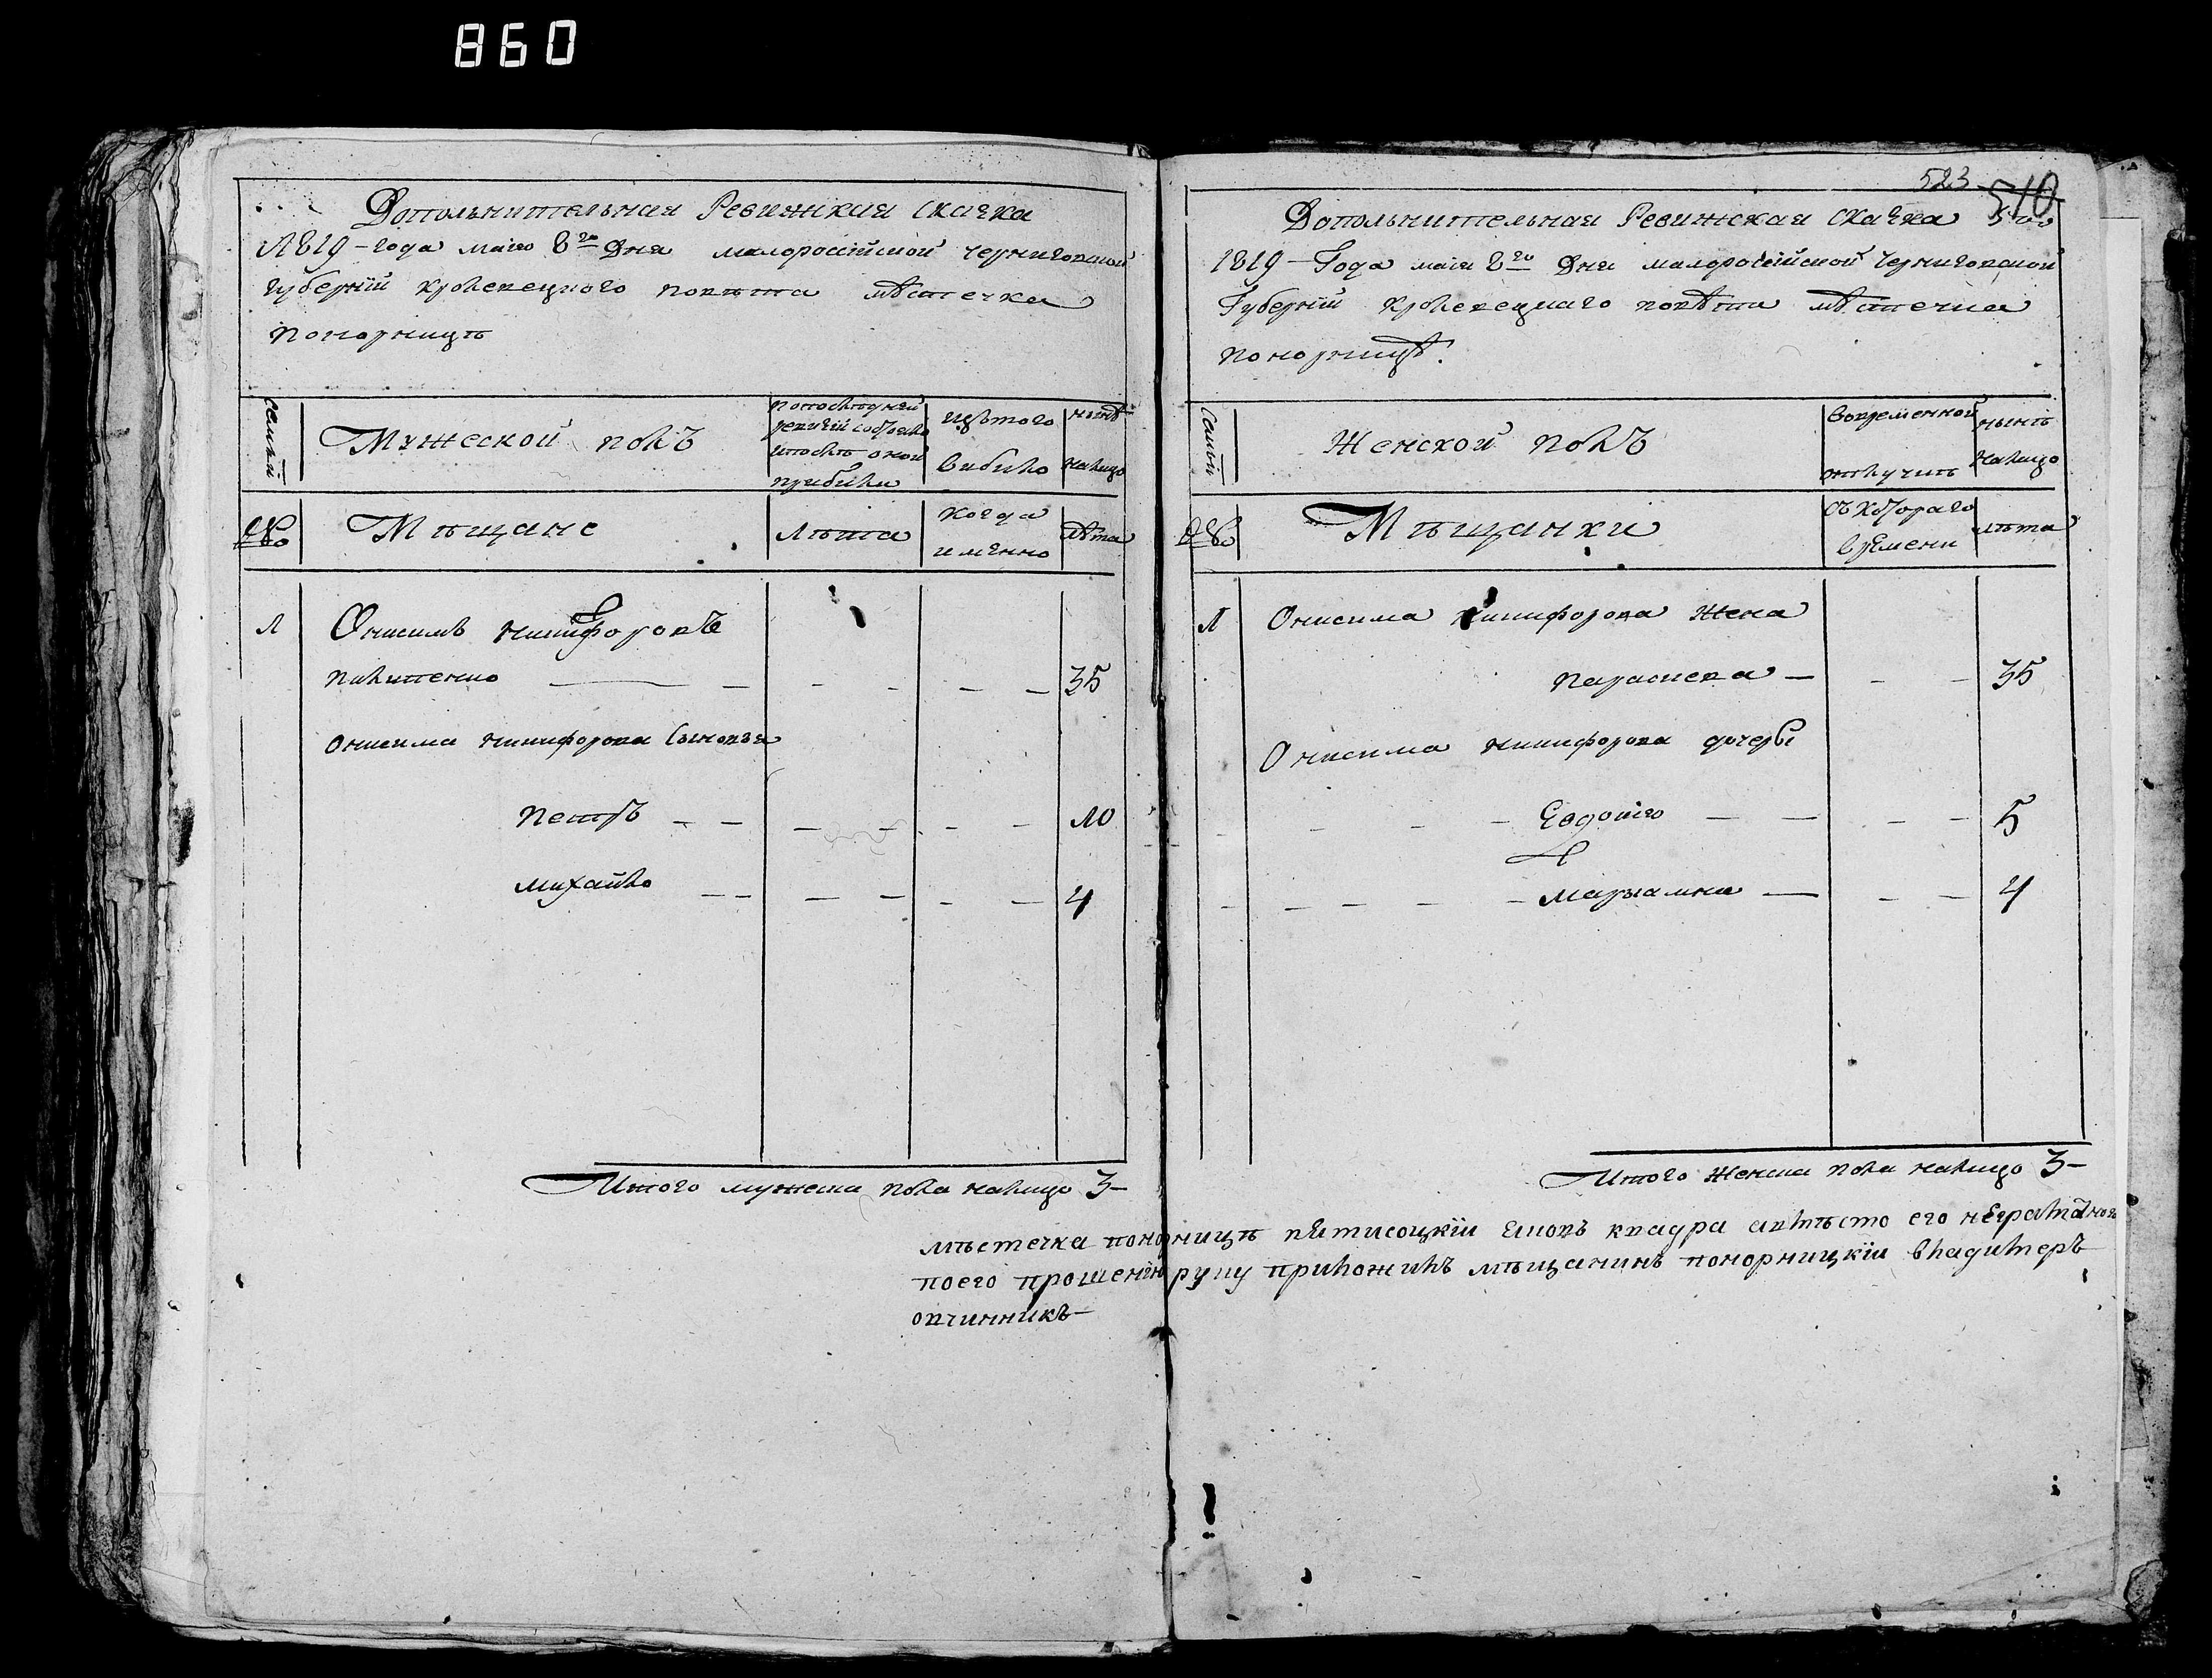 860
Дополънителъная Ревижская скаска
1819 - года маия 8го Дня малороссійской черниговской
губерній кролевецкого повѣта мѣстечка
понорницѣ
семьи
Мужеской полъ
попослѣдней ревизій состояло ипослѣ оной прибыли
изътого выбыло
нынѣ налицо
№
Мѣщане
Лѣта
когда имянно
лѣта
1 Онисимъ никифоровъ
пилипенко 35
онисима никифорова сыновья
петръ 10
михайло 4
Итого мужеска пола налицо 3
523
510
Дополънителъная Ревижская скаска
1819 - Года маія 8го Дня малоросійской Черниговской
Губерній кролевецкаго повѣта мѣстечка
понорницѣ.
семьи
Женской полъ
вовременной отлучкѣ
нынѣ налицо
№
Мѣщанки
съ которого времени
лѣта
1 Онисима никифорова жена
параскева 35
Онисима никифорова дочери
Евдокия 5
марьамна 4
Итого женска пола налицо 3
мѣстечка понорницѣ пятисоцкій яковъ квадра авмѣсто его неграмотного
поего прошению руку приложилъ мѣщанинъ понорницкій владимеръ
овчинникъ